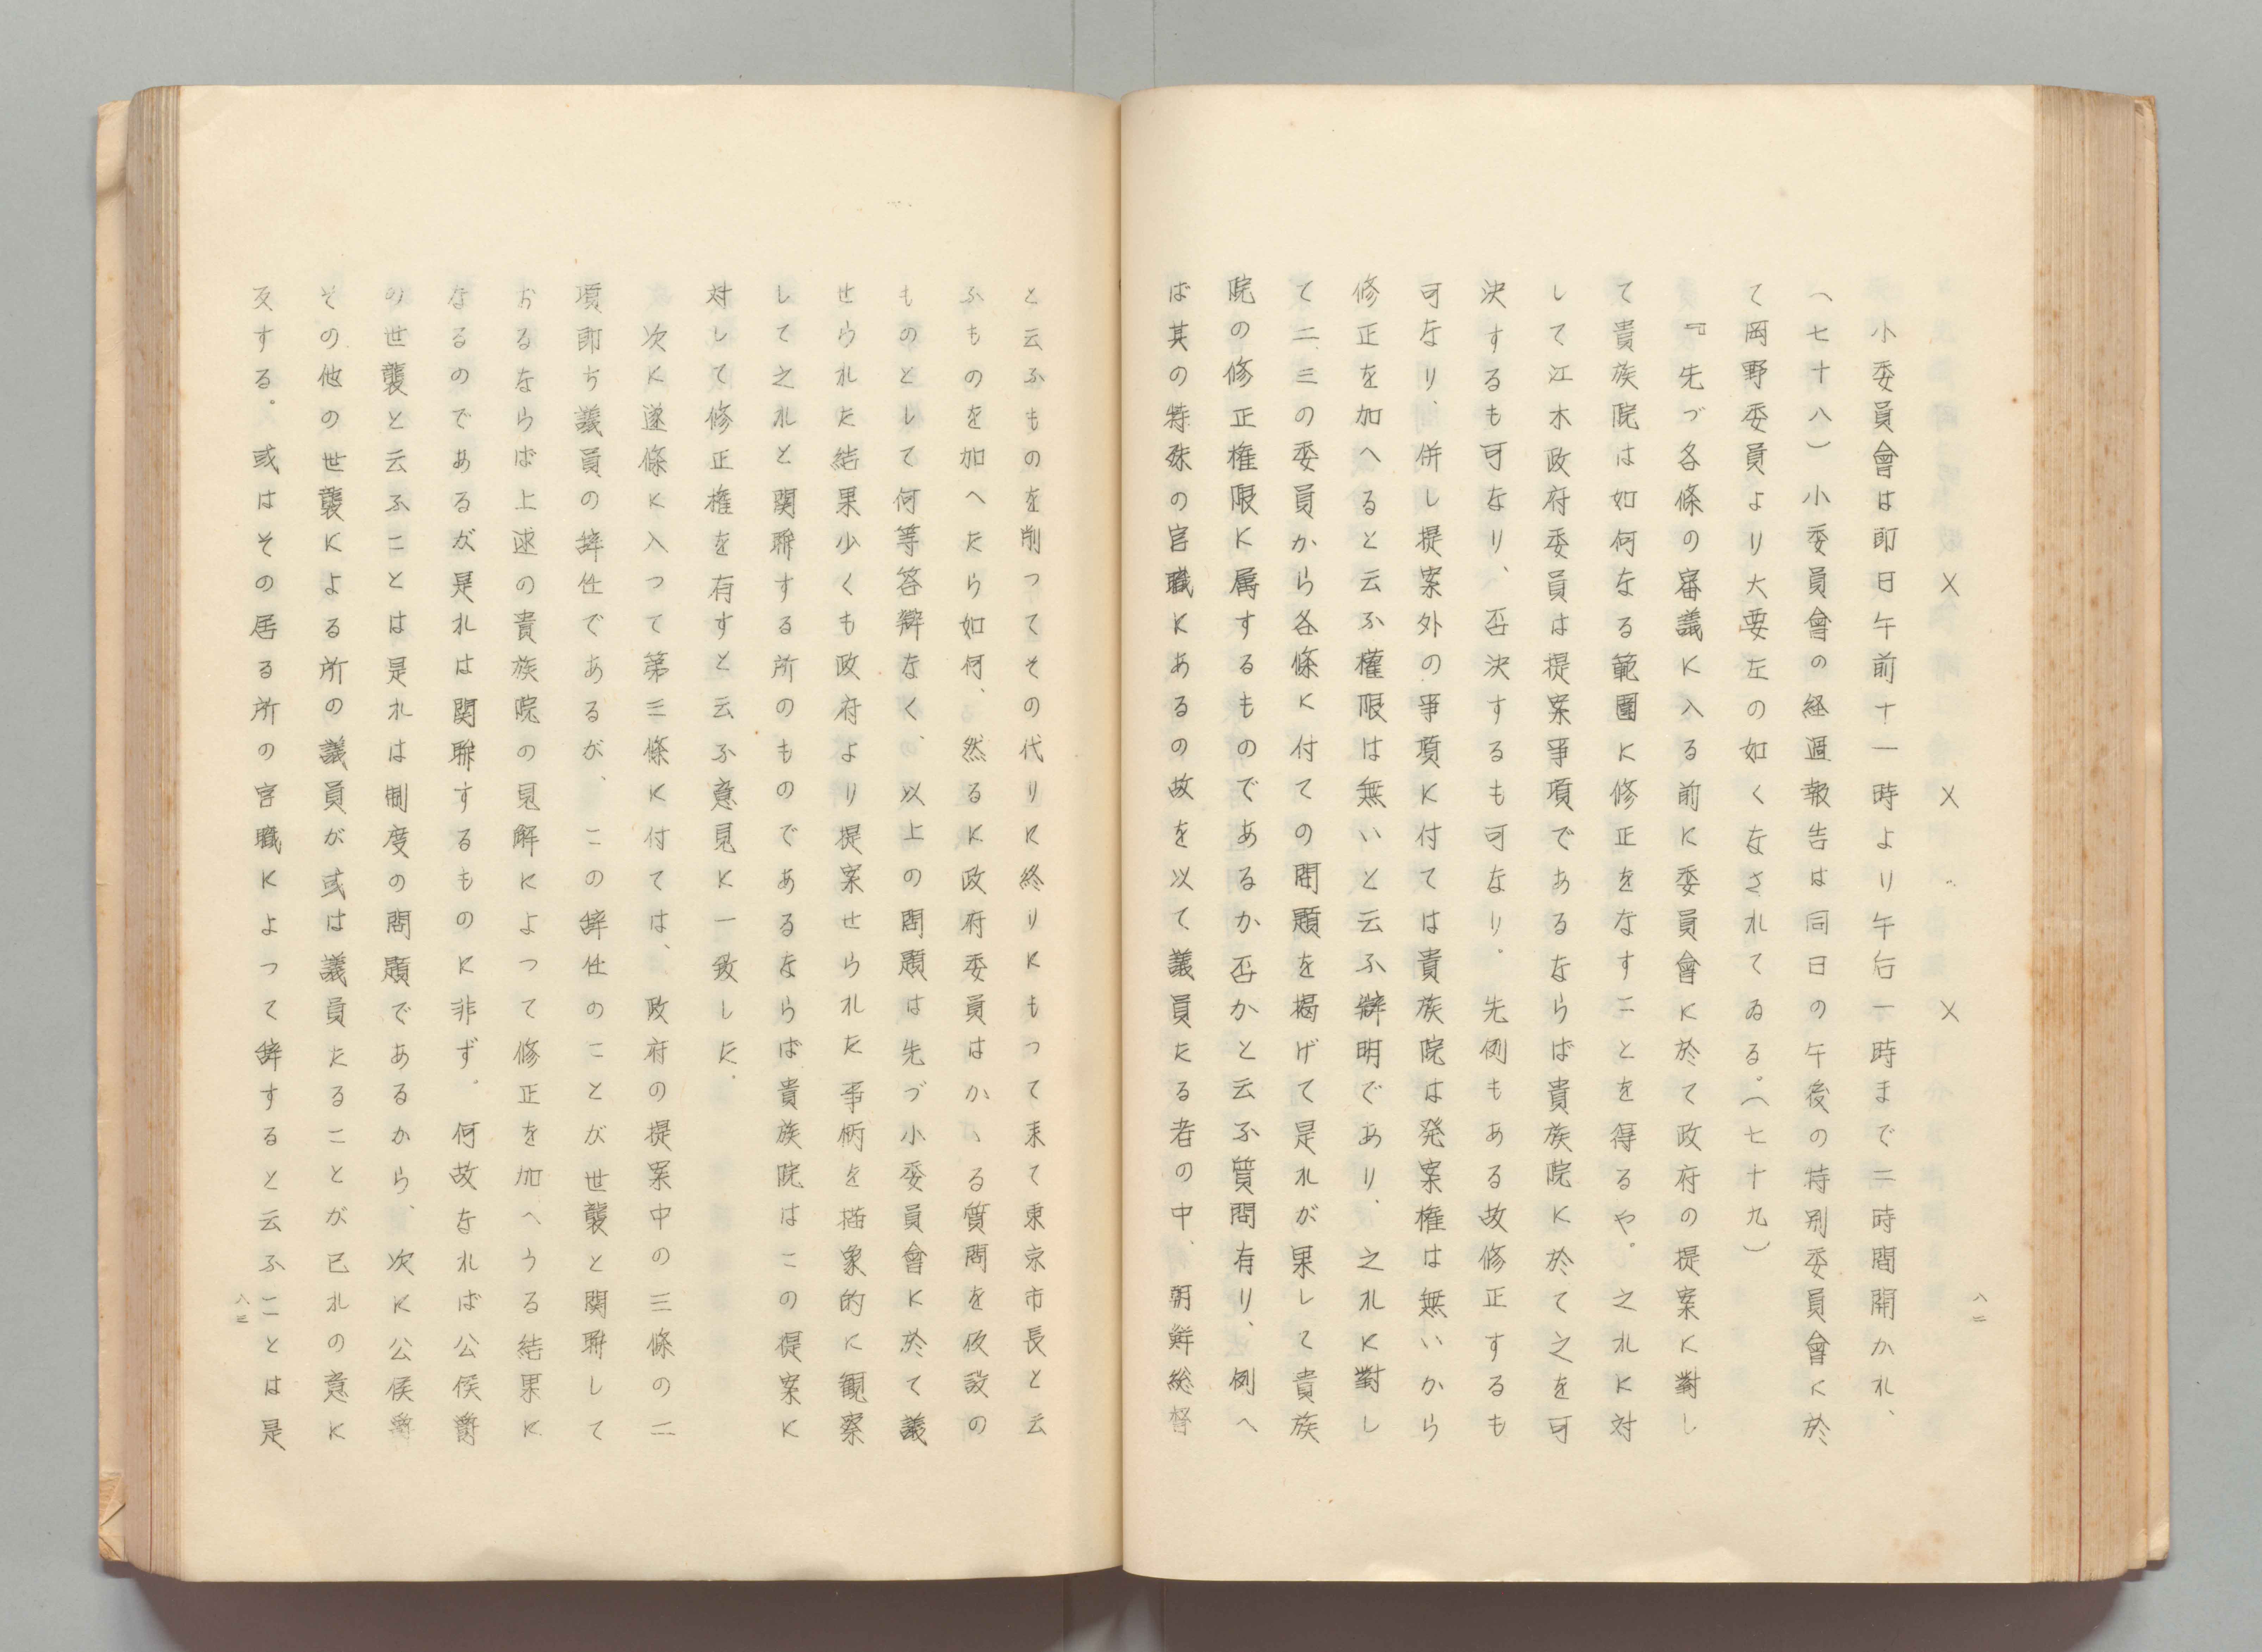 八二
× × ×
小委員會は即日午前十一時より午后一時まで二時間開かれ、
(七十八)小委員會の経過報告は同日の午後の特別委員會に於
て岡野委員より大要左の如くなされてゐる。(七十九)
『先づ各條の審議に入る前に委員會に於て政府の提案に對し
て貴族院は如何なる範圍に修正をなすことを得るや。之れに対
して江木政府委員は提案事項であるならば貴族院に於て之を可
決するも可なり、否決するも可なり。先例もある故修正するも
可なり、併し提案外の事項に付ては貴族院は発案権は無いから
修正を加へると云ふ權限は無いと云ふ辯明であり、之れに對し
て二、三の委員から各條に付ての問題を掲げて是れが果して貴族
院の修正権限に属するものであるか否かと云ふ質問有り、例へ
ば其の特殊の官職にあるの故を以て議員たる者の中、朝鮮総督
と云ふものを削つてその代りに終りにもつて来て東京市長と云
ふものを加へたら如何、然るに政府委員はかゝる質問を仮設の
ものとして何等答辯なく、以上の問題は先づ小委員會に於て議
せられた結果少くも政府より提案せられた事柄を描象的に観察
して之れと関聯する所のものであるならば貴族院はこの提案に
対して修正権を有すと云ふ意見に一致した.
次に遂條に入つて第三條に付ては、政府の提案中の三條の二
項即ち議員の辞任であるが、この辞任のことが世襲と関聯して
おるならば上述の貴族院の見解によつて修正を加へうる結果に
なるのであるが是れは関聯するものに非ず。何故なれば公侯爵
の世襲と云ふことは是れは制度の問題であるから、次に公侯爵
その他の世襲による所の議員が或は議員たることが已れの意に
反する。或はその居る所の官職によつて辞すると云ふことは是
八三